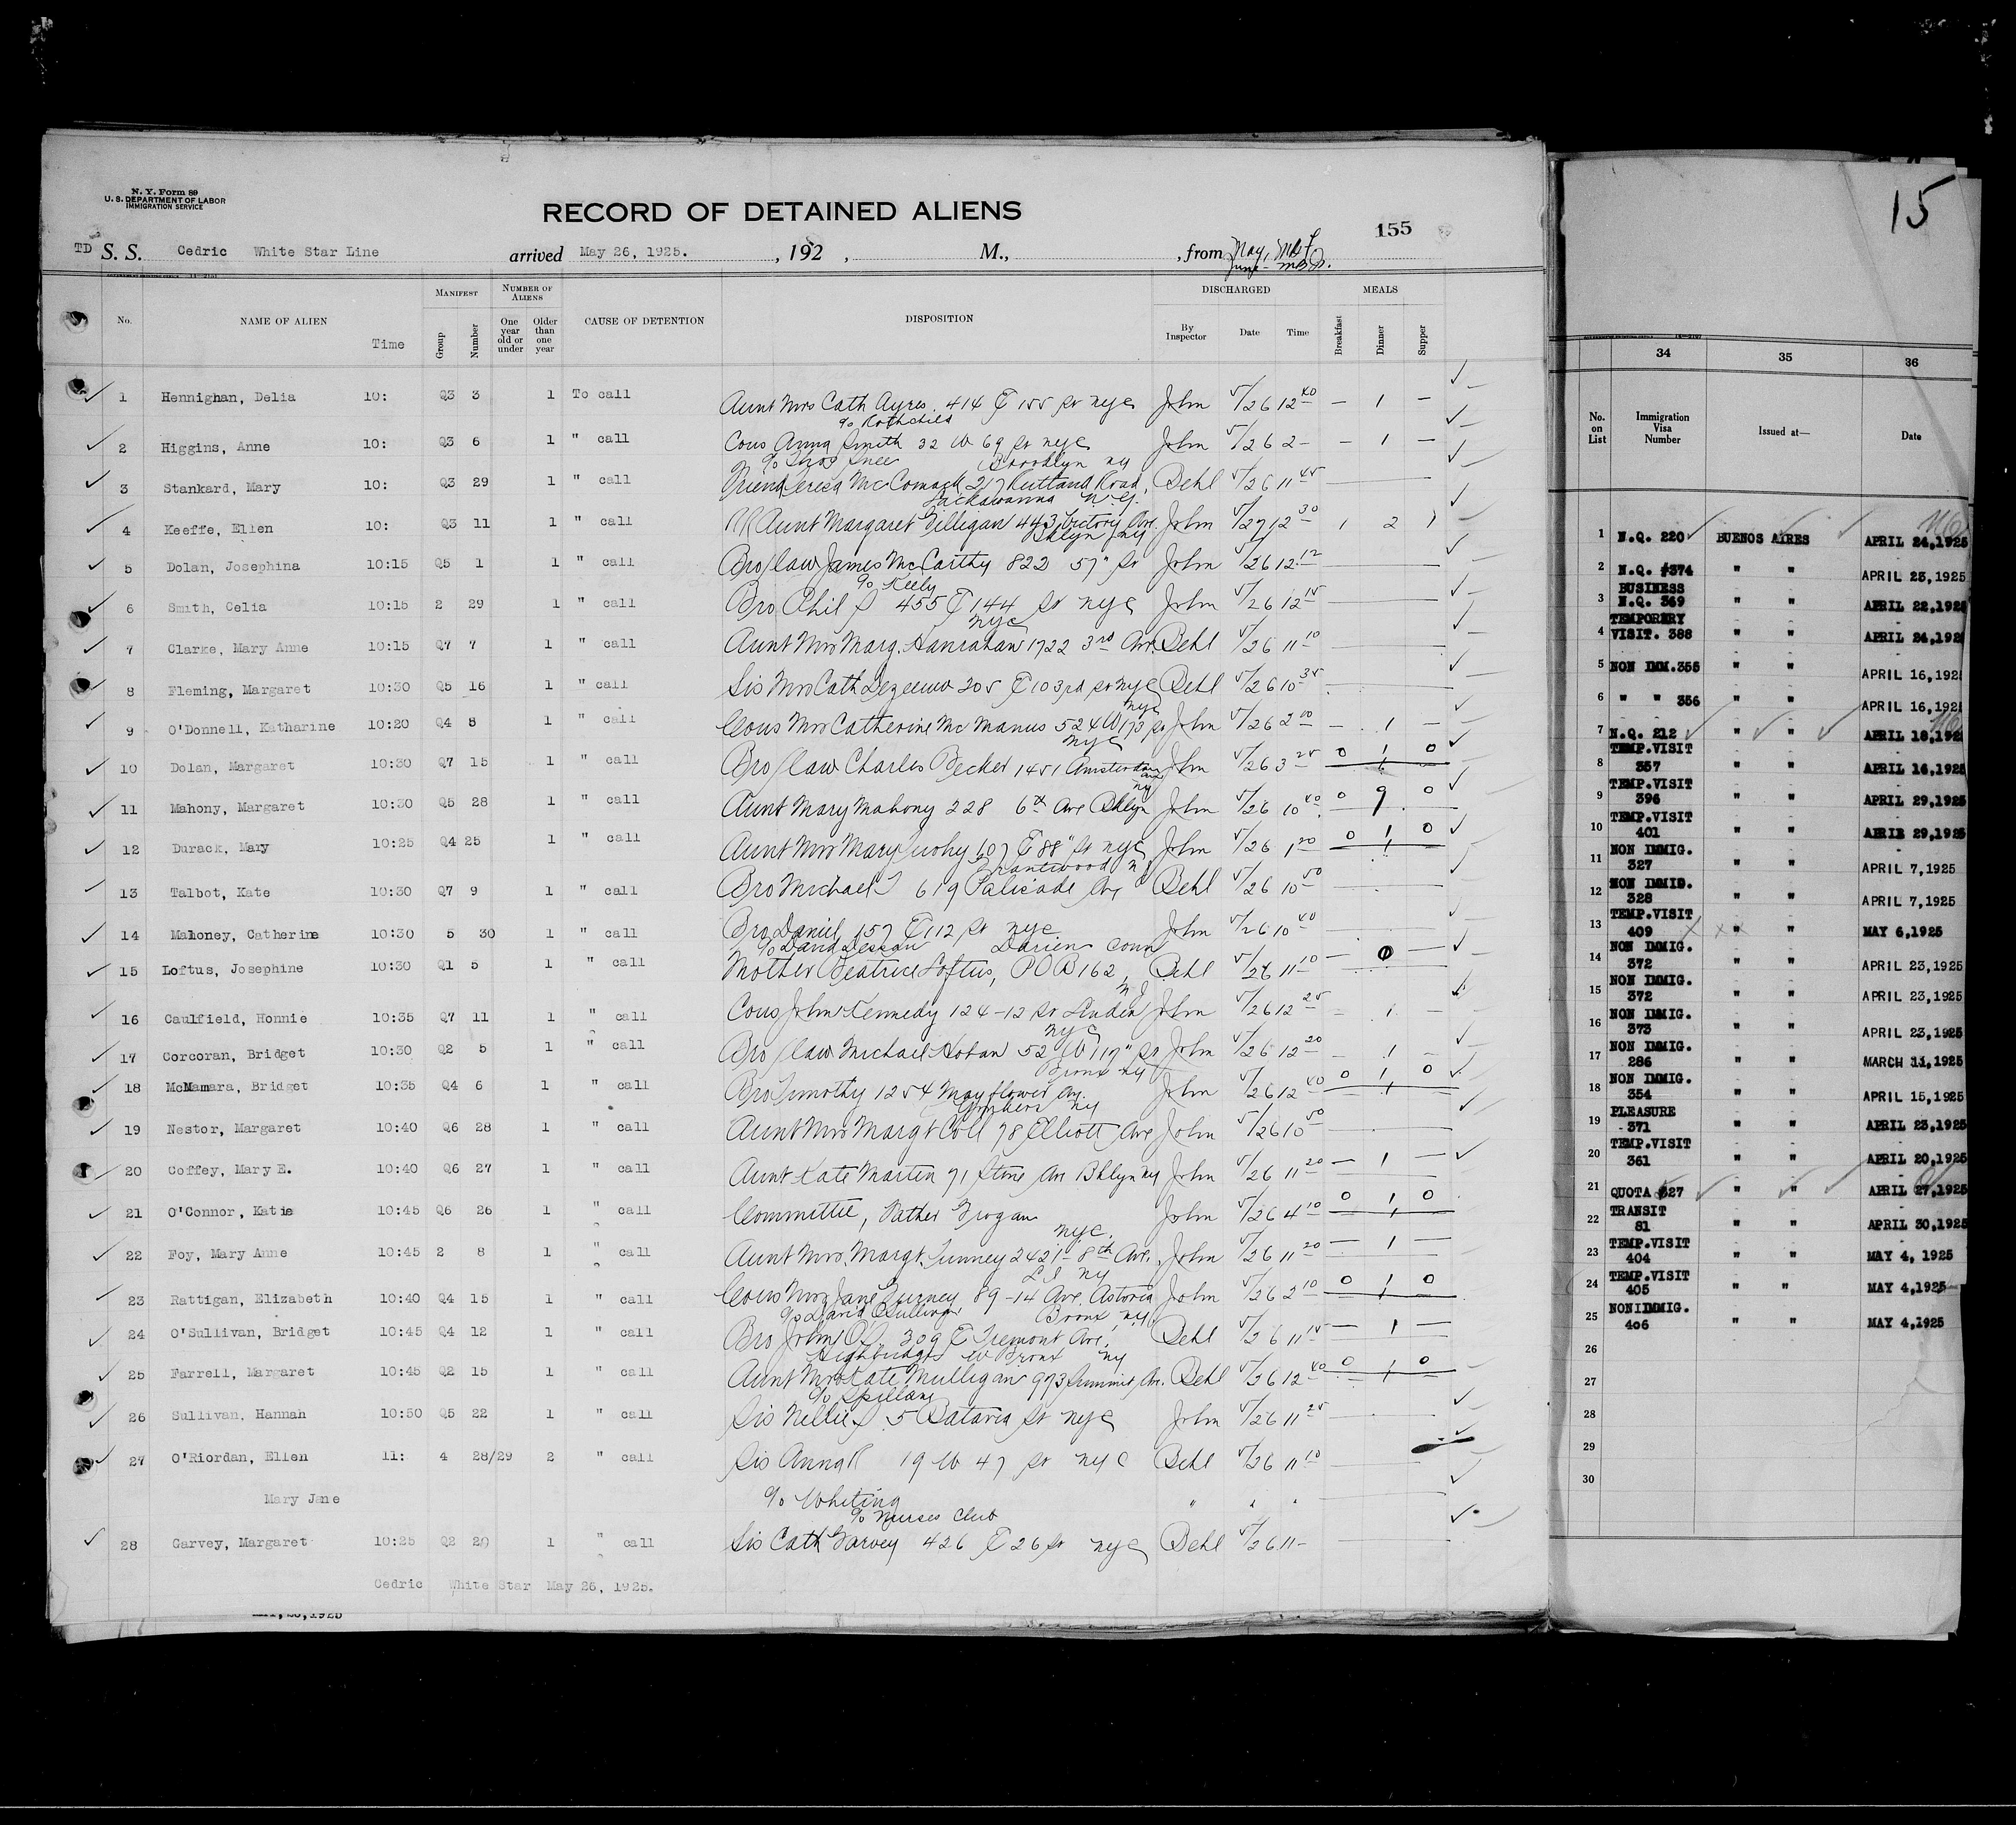 N. Y. Form 89
U. S. DEPARTMENT OF LABOR
IMMIGRATION SERVICE
RECORD OF DETAINED ALIENS
155
TD S. S. Cedric White Star Line arrived May 26, 1925. , 192 , M., , from May,
June
No. NAME OF ALIEN Time MANIFEST Group Number NUMBER OF ALIENS One year old or under Older than one year CAUSE OF DETENTION DISPOSITION DISCHARGED By Inspector Date Time MEALS Breakfast Dinner Supper
1 Hennighan, Delia 10: Q3 3 1 To call Aunt Mrs Cath Ayres 414 E 155 St nyc John 5/26 12 40 – 1 –
c/o Rothchild
2 Higgins, Anne 10: Q3 6 1 " call Cous Anna Smith 32 W 69 St nyc John 5/26 2– – 1 –
c/o Thos Brooklyn ny
3 Stankard, Mary 10: Q3 29 1 " call Friend McComack 217 Rutland Road, Behl 5/26 11 45
Lackawanna N.Y.
4 Keeffe, Ellen 10: Q3 11 1 " call RR Aunt Margaret Gilligan 443 Victory Ave. John 5/27 12 30 1 2 1
Bklyn ny
5 Dolan, Josephina 10:15 Q5 1 1 " call Bro/law James McCarthy 822 57" St John 5/26 12 12
c/o Keely
6 Smith, Celia 10:15 2 29 1 " call Bro Phil S 455 E 144 St nyc John 5/26 12 15
nyc
7 Clarke, Mary Anne 10:15 Q7 7 1 " call Aunt Mrs Marg. Hanrahan 1722 3rd Ave. Behl 5/26 11 10
8 Fleming, Margaret 10:30 Q5 16 1 " call Sis Mrs Cath 205 E 103rd St nyc Behl 5/26 10 35
nyc
9 O'Donnell, Katharine 10:20 Q4 8 1 " call Cous Mrs Catherine McManus 524 W 173 St John 5/26 2 00 – 1 –
nyc
10 Dolan, Margaret 10:30 Q7 15 1 " call Bro/law Charles Becker 1451 Amsterdam Ave John 5/26 3 25 0 1 0
ny
11 Mahony, Margaret 10:30 Q5 28 1 " call Aunt Mary Mahony 228 6th Ave Bklyn John 5/26 10 40 0 9 0
12 Durack, Mary 10:25 Q4 25 1 " call Aunt Mrs Mary Tuohy 107 E 88" St nyc John 5/26 1 20 0 1 0
Grantwood NJ
13 Talbot, Kate 10:30 Q7 9 1 " call Bro Michael T 619 Palisade Ave Behl 5/26 10 50
14 Mahoney, Catherine 10:30 5 30 1 " call Bro Daniel 157 E 112 St nyc John 5/26 10 40
c/o David Darien Conn
15 Loftus, Josephine 10:30 Q1 5 1 " call Mother Beatrice Loftus, POB 162, Behl 5/26 11 10 – 0 –
NJ
16 Caulfield, Honnie 10:35 Q7 11 1 " call Cous John Kennedy 124-12 St Linden John 5/26 12 25 – 1 –
nyc
17 Corcoran, Bridget 10:30 Q2 5 1 " call Bro/law Michael Hoban 52 W 117" St John 5/26 12 20 – 1 –
Bronx ny
18 McMamara, Bridget 10:35 Q4 6 1 " call Bro Timothy 1254 Mayflower Av. John 5/26 12 40 0 1 0
Yonkers ny
19 Nestor, Margaret 10:40 Q6 28 1 " call Aunt Mrs Margt Coll 78 Elliott Ave John 5/26 10 50
20 Coffey, Mary E. 10:40 Q6 27 1 " call Aunt Kate Martin 71 Stone Ave Bklyn ny John 5/26 11 20 – 1 –
21 O'Connor, Katie 10:45 Q6 26 1 " call Committee, Father Grogan John 5/26 4 10 0 1 0
nyc.
22 Foy, Mary Anne 10:45 2 8 1 " call Aunt Mrs. Margt. Tunney 2421-8th Ave. John 5/26 11 20 – 1 –
L I ny
23 Rattigan, Elizabeth 10:40 Q4 15 1 " call Cous Mrs Jane 89-14 Ave. Astoria John 5/26 2 10 0 1 0
c/o David O'Sullivan Bronx, ny.
24 O'Sullivan, Bridget 10:45 Q4 12 1 " call Bro John O'S. 309 E Tremont Ave. Behl 5/26 11 15 – 1 –
Highbridge W Bronx ny
25 Farrell, Margaret 10:45 Q2 15 1 " call Aunt Mrs Kate Mulligan 973 Summit Ave. Behl 5/26 12 40 0 1 0
c/o Spillane
26 Sullivan, Hannah 10:50 Q5 22 1 " call Sis Nellie S. 5 Batavia St nyc John 5/26 11 25
27 O'Riordan, Ellen 11: 4 28/29 2 " call Sis Anna R 19 W 47 St nyc Behl 5/26 11 10
Mary Jane c/o Whiting " " "
c/o Nurses Club
28 Garvey, Margaret 10:25 Q2 20 1 " call Sis Cath Garvey 426 E 26 St nyc Behl 5/26 11–
Cedric White Star May 26, 1925.
15
34 35 36
No. on List Immigration Visa Number Issued at— Date
1 N.Q. 220 BUENOS AIRES APRIL 24,1925
2 N.Q. #374 " " APRIL 25,1925
3 BUSINESS N.Q. 369 " " APRIL 22,1925
4 TEMPORERY VISIT. 388 " " APRIL 24,192
5 NON IMM.355 " " APRIL 16,192
6 " " 356 " " APRIL 16,192
7 N.Q. 212 " " APRIL 18,192
8 TEMP.VISIT 357 " " APRIL 16,1925
9 TEMP.VISIT 396 " " APRIL 29,1925
10 TEMP.VISIT 401 " " APRIL 29,1925
11 NON IMMIG. 327 " " APRIL 7,1925
12 NON IMMIG. 328 " " APRIL 7,1925
13 TEMP.VISIT 409 " " MAY 6,1925
14 NON IMMIG. 372 " " APRIL 23,1925
15 NON IMMIG. 372 " " APRIL 23,1925
16 NON IMMIG. 373 " " APRIL 23,1925
17 NON IMMIG. 286 " " MARCH 11,1925
18 NON IMMIG. 354 " " APRIL 15,1925
19 PLEASURE 371 " " APRIL 23,1925
20 TEMP.VISIT 361 " " APRIL 20,1925
21 QUOTA 327 " " APRIL 27,1925
22 TRANSIT 81 " " APRIL 30,1925
23 TEMP.VISIT 404 " " MAY 4, 1925
24 TEMP.VISIT 405 " " MAY 4,1925
25 NONIMMIG. 406 " " MAY 4,1925
26
27
28
29
30